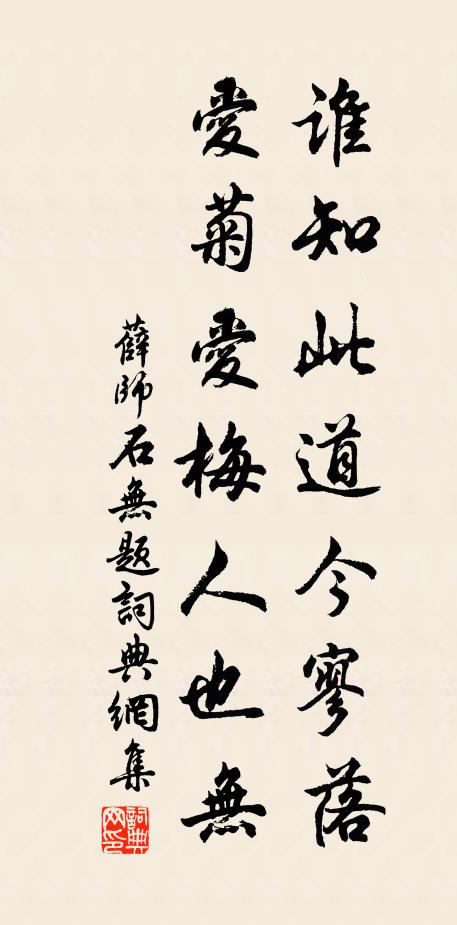 誰知此道今寥落
愛菊愛梅人也無
薛師石無題詞典網集
詞典網印